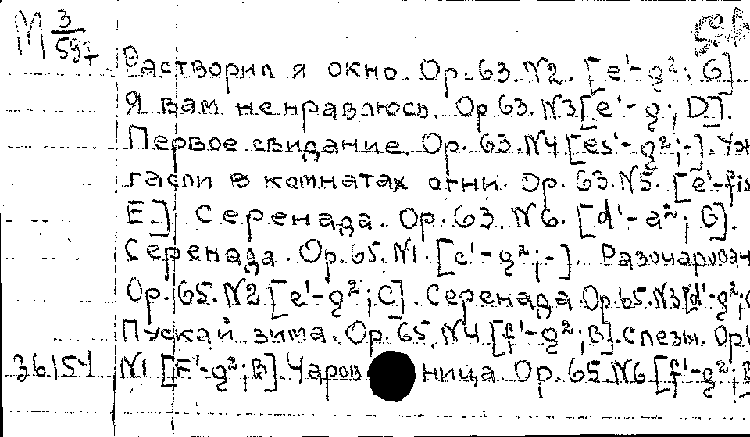 М 3/597
Растворил я окно. Op. 63. N2. [e'-g²; G].
Я вам не нравлюсь. Op 63. N3 [e'-g; D].
Первое свидание. Op. 63. N4 [es'-g²;-]. Уж
гасли в комнатах огни. Op. 63. N5. [e'-fis
E.] Серенада. Op. 63. N6. [d'-a²; G].
Серенада. Op. 65. N1. [e'-g²;-]. Разочарован
Op. 65. N2 [e'-g²; C]. Серенада Op. 65. N3 [d'-g²;
Пускай зима. Op. 65. N4 [f'-g²; B]. Слезы. Op
36154 N1 [F'-g²; B]. Чаров ница Op. 65 N6 [f'-g²;